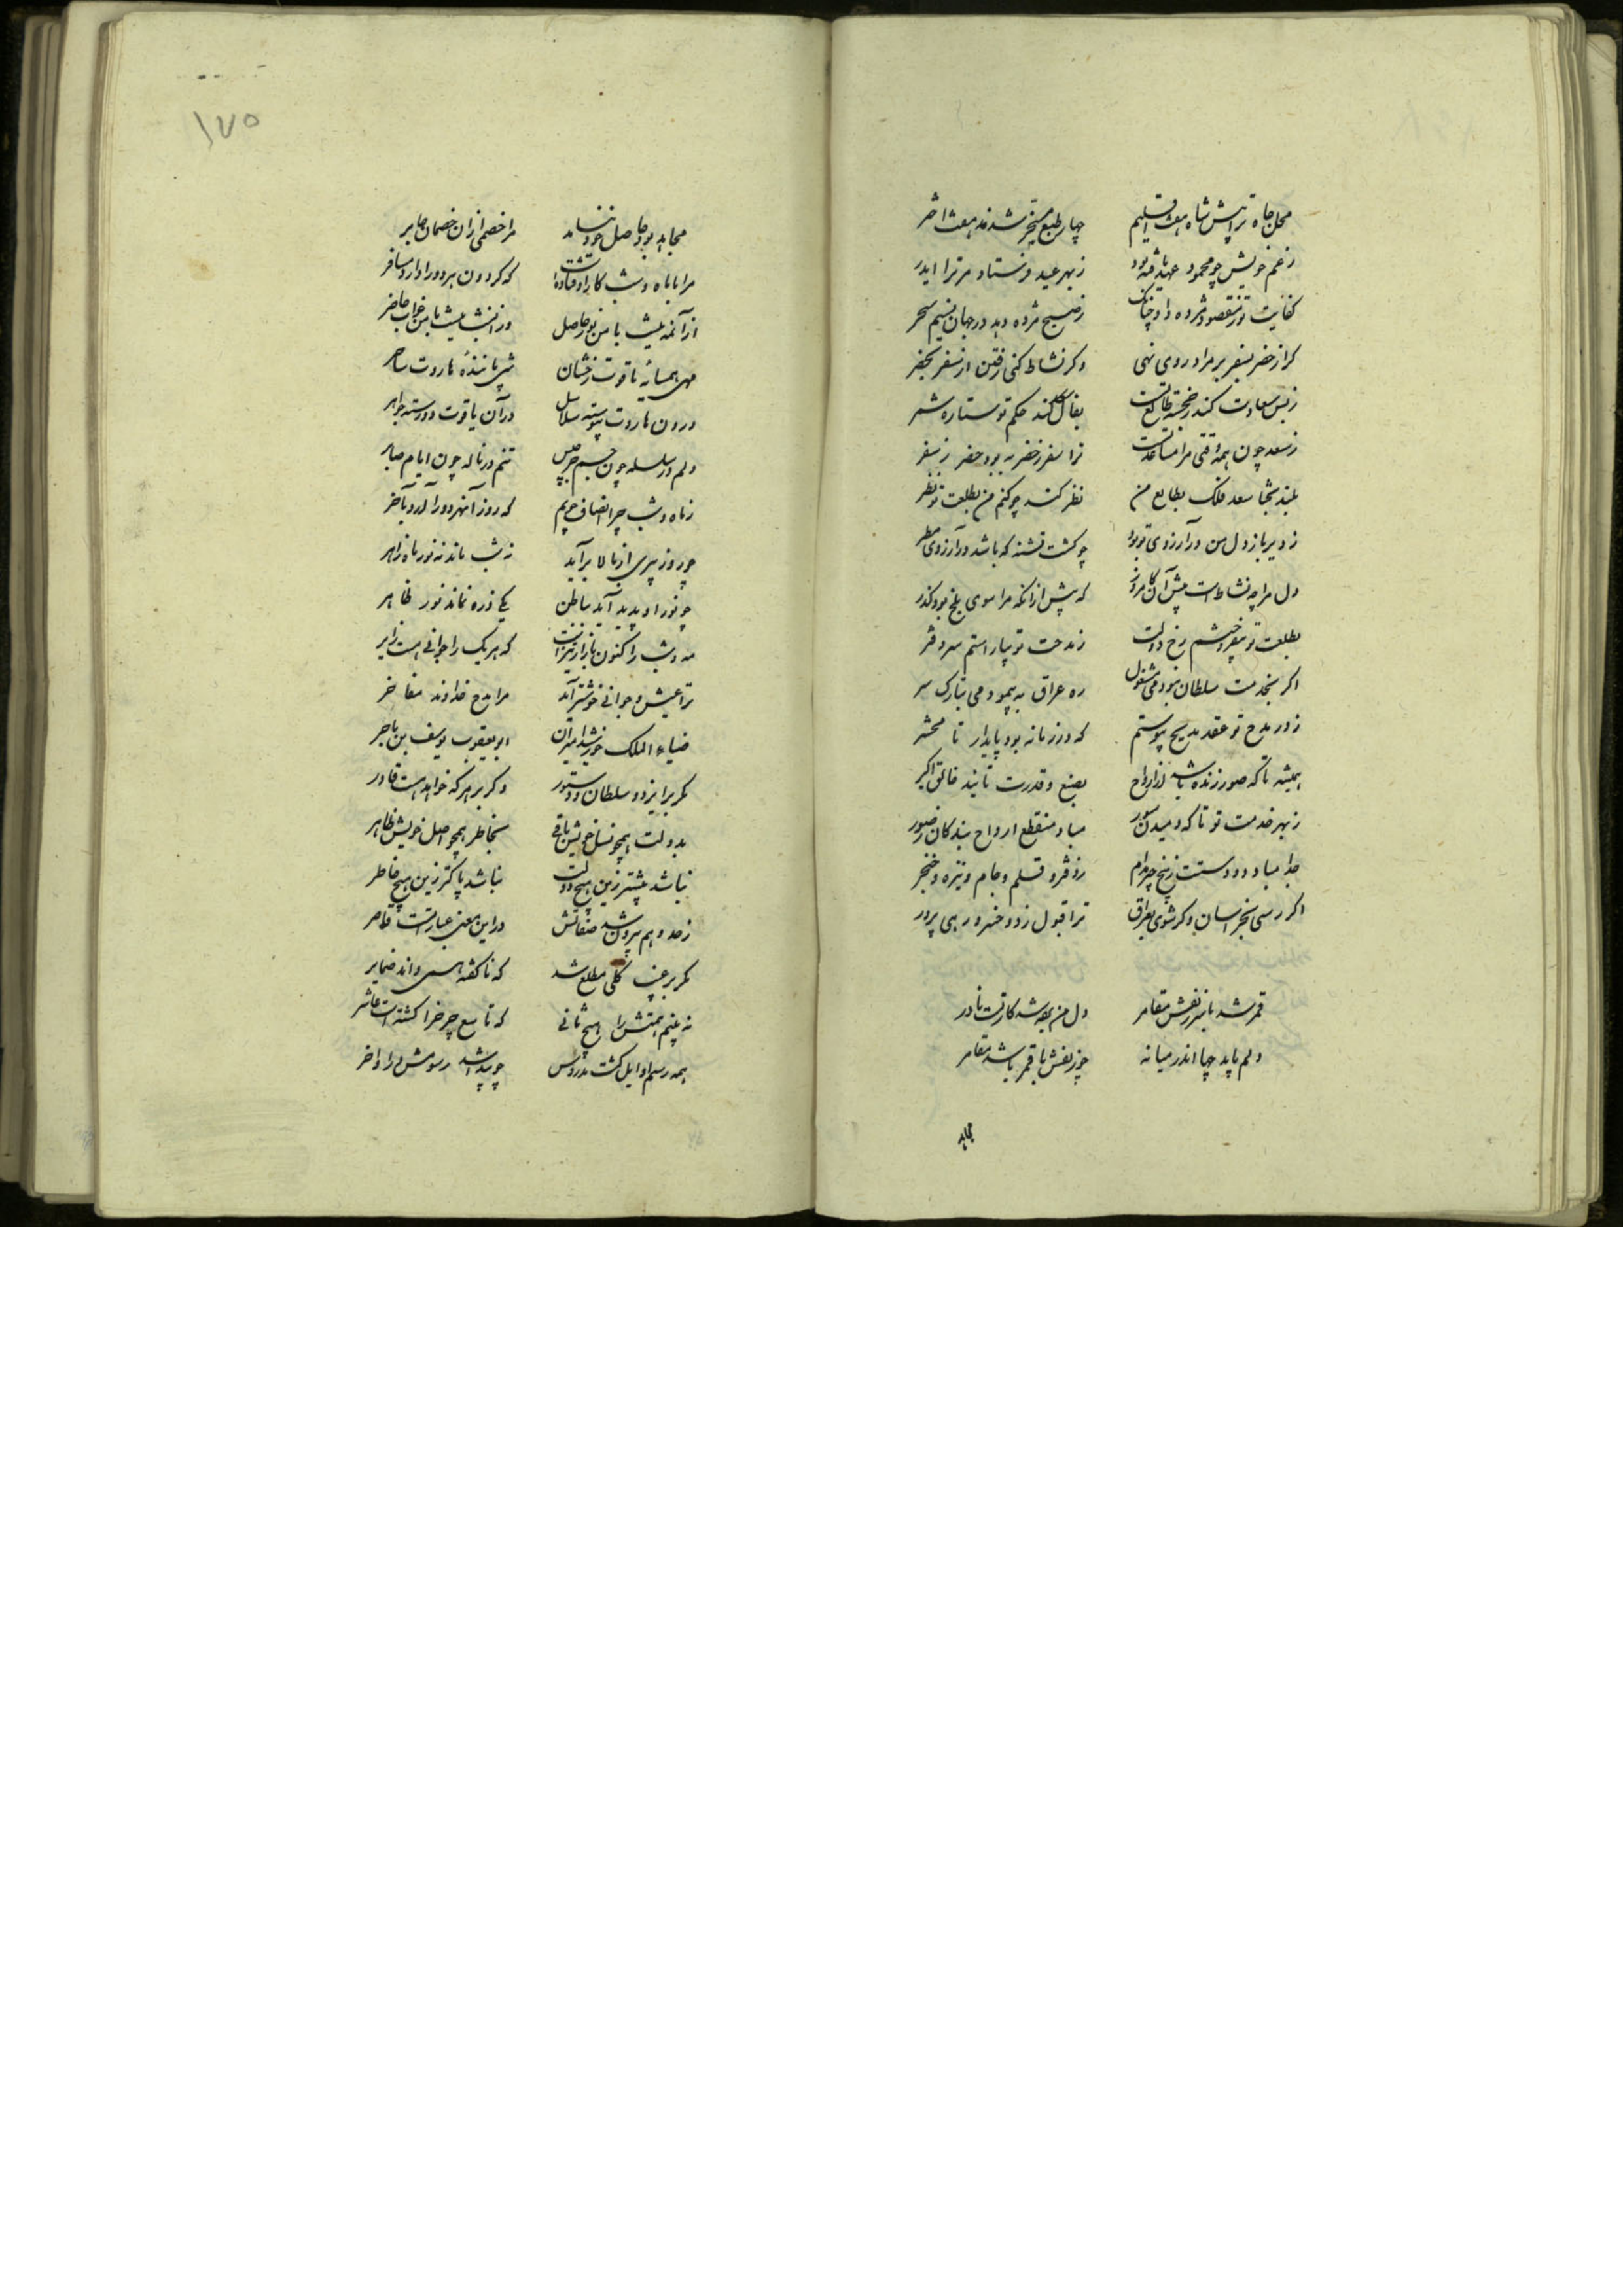 محل جاه ترا پیش شاه هفت اقلیم چهار طبع مسخر شدند هفت اختر
زعم خویش چو محمود عهد یافته بود ز بهر عید فرستاد مر ترا ایدر
کفایت تو ز مقصود مژده داد چنانک ز صبح مژده دهد در جهان نسیم سحر
کر از حضر بسفر بر مراد روی نهی وکر نشاط کنی رفتن از سفر بحضر
ز بس سعادت کند خجسته طالع تست بفال کند حکم تو ستاره شمر
ز سعد چون همه اتفقی مرا مساعدتست ترا سفر ز حضر به بود حضر ز سفر
بلند بختا سعد فلک بطالع من نظر کند چو کنم من بطلعت تو نظر
ز دیر باز دل من در آرزوی تو بود چو کشت تشنه که باشد در آرزوی مطر
دل مرا چه نشاطست پیش آن کامروز که پیش از انکه مرا سوی بلخ بود کذر
بطلعت تو بیفروختم رخ دولت ز مدحت تو بیاراستم سر دفتر
اکر بخدمت سلطان نبودمی مشغول ره عراق به پیمودمی بتارک سر
ز در مدح تو عقد مدیح پیوستم که در زمانه بود پایدار تا محشر
همیشه تا که صور زنده باشد از ارواح بصنع و قدرت تایید خالق اکبر
ز بهر خدمت تو تا که دمیدن صور مباد منقطع ارواح بندکان ز صور
جدا مباد دو دستت ز پنج چیز مدام ز دفتر و قلم و جام و نیزه و خنجر
اکر رسی بخراسان وکر شوی بعراق ترا قبول ز دو خسرو رهی پرور
قمر شد با سر زلفش مقامر دل من برد شد کارت نادر
دلم باید چها اندر میانه چو زلفش با قمر باشد مقامر
مجاهز
۱۷۵
مجاهز بود حاصل خود نماند مرا خصمی از آن خصمان جابر
مرا با ماه و شب کار اوفتادست که کردون هر دو را دارد مسافر
از آن مه نیست با من نور حاصل وز آن شب نیست با من خواب حاضر
مهی همسایهٔ یاقوت رخشان شبی مانندهٔ هاروت ساحر
درون هاروت پیوسته سلاسل در آن یاقوت دو رسته جواهر
دلم در سلسله چون جسم جرجیس تنم در ناله چون ایام صابر
ز ماه و شب چرا انصاف جویم که روز آن هر دو را آرد بآخر
چو روز پیری از بالا برآید نه شب ماند نه نور ماه زاهر
چو نور او پدید آید بباطن یکی ذره نماند نور ظاهر
مه و شب را کنون بازار تیزست که هر یک را جوانی هست زایر
ترا عیش و جوانی خوشتر آید مرا مدح خداوند مفاخر
ضیاء الملک خورشید امیران ابو یعقوب یوسف بن باجر
کمر بر ایزد و سلطان و دستور وکر بر هرکه خواهدست قادر
بدولت همچو نسل خویش باقی بخاطر همچو اصل خویش طاهر
نباشد بیشتر زین هیچ دولت نباشد پاکتر زین هیچ خاطر
ز حد وهم بیرون شد صفاتش در این معنی عبارتست قاصر
کمر بر غیب کلی مطلع شد که ناکفته همی داند ضمایر
نه بینم همتش را هیچ ثانی که تاسع چرخ را کشته است عاشر
همه رسم اوایل کشت مدروس چو پیدا شد رسومش در اواخر